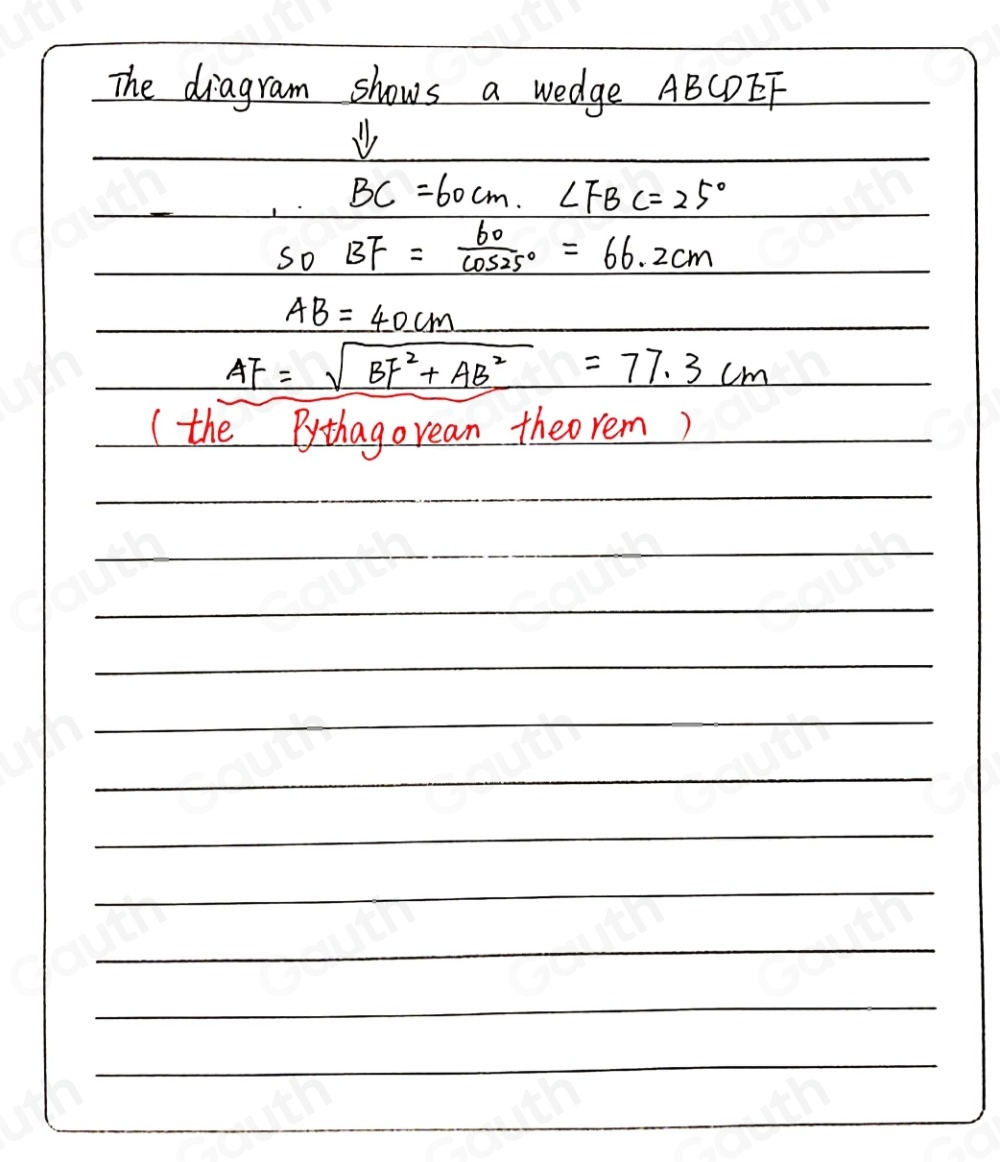 The diagram shows a wedge ABCDEF
⇓
BC = 60 cm. ∠FBC = 25°
so BF = 60/cos25° = 66.2cm
AB = 40 cm
AF = √(BF² + AB²) = 77.3 cm
(the Pythagorean theorem)
Gauth